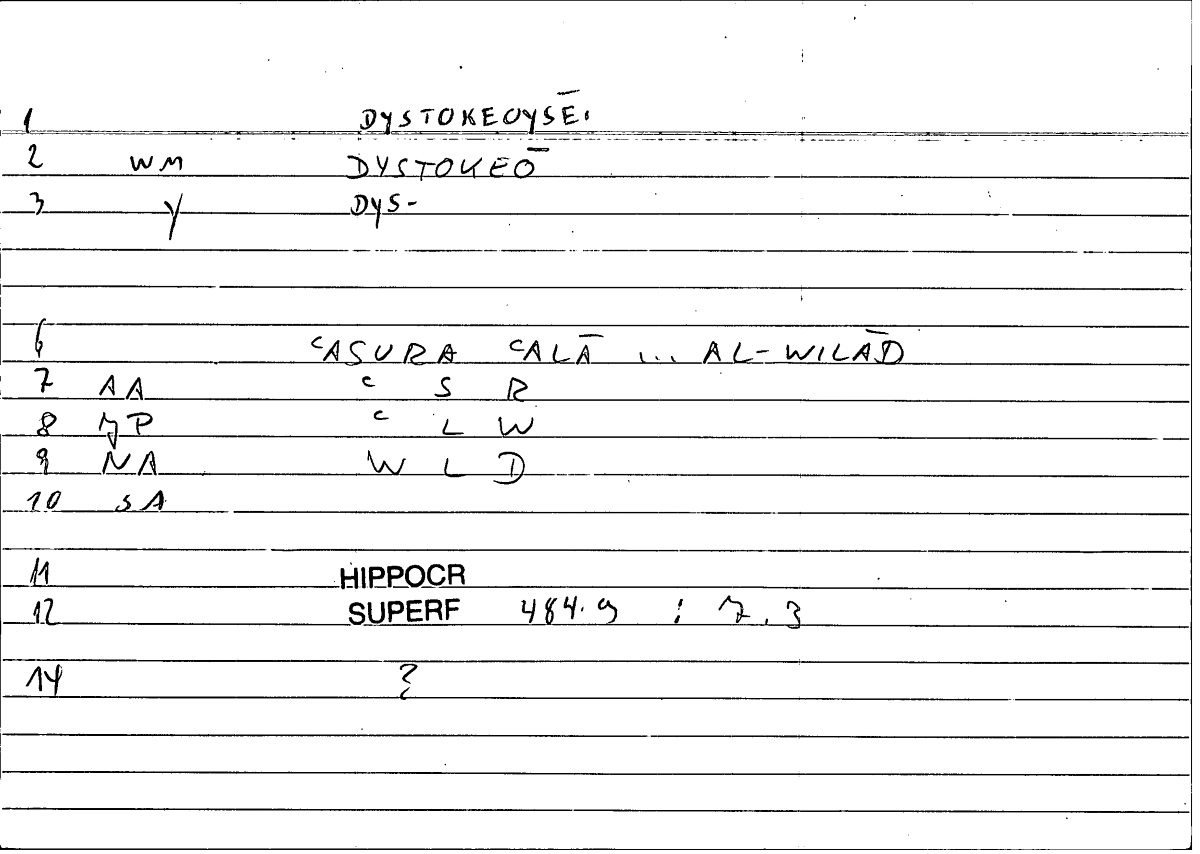 1 DYSTOKEOYSĒI
2 WM DYSTOKEŌ
3 Y DYS-
6 ᶜASURA ᶜALĀ ... AL-WILĀD
7 AA ᶜ S R
8 P ᶜ L W
9 NA W L D
10 SA
11 HIPPOCR
12 SUPERF 484.9 : 7.3
14 ?